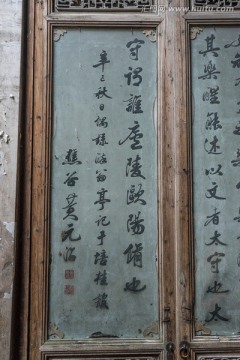 其樂醒能述以文者太守也太
守謂誰廬陵歐陽脩也
辛巳秋日偶録醉翁亭記于培桂樓
樵谷黃元治